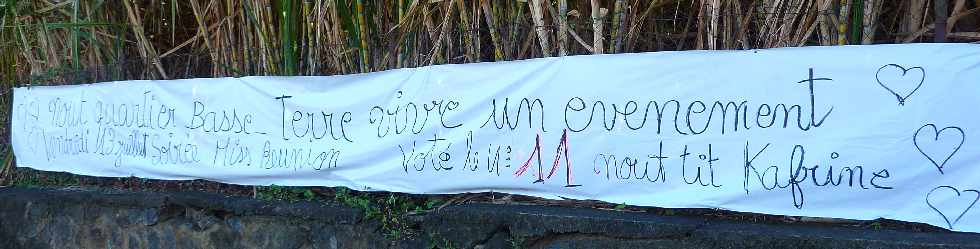 nout quartier Basse_Terre vivre un evenement
Vendredi 13 juillet Soirée Miss Réunion Voté le n° 11 nout tit Kafrine